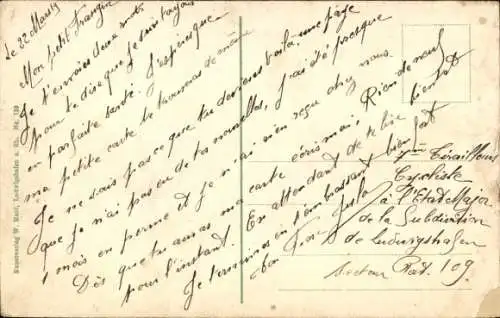 Le 22 Mars
Mon petit Frangin
Je t'envoies deux mots
pour te dire que je suis toujours
en parfaite santé. J'espère que
ma petite carte te trouvera de même
Je ne sais pas ce que tu deviens voilà une page
que je n'ai pas eu de tes nouvelles, j'ai été presque
1 mois en perme et je n'ai rien reçu chez nous
Dès que tu auras ma carte écris moi,
pour l'instant. Rien de neuf
En attendant de te lire bientôt
Je termines en t'embrassant bien fort
Ton
Tirailleurs
Cycliste
à l'Etat Major
de la Subdivision
de Ludwigshafen
Secteur Rad. 109.
Kunstverlag W. Ludwigshafen a. Rh. No.